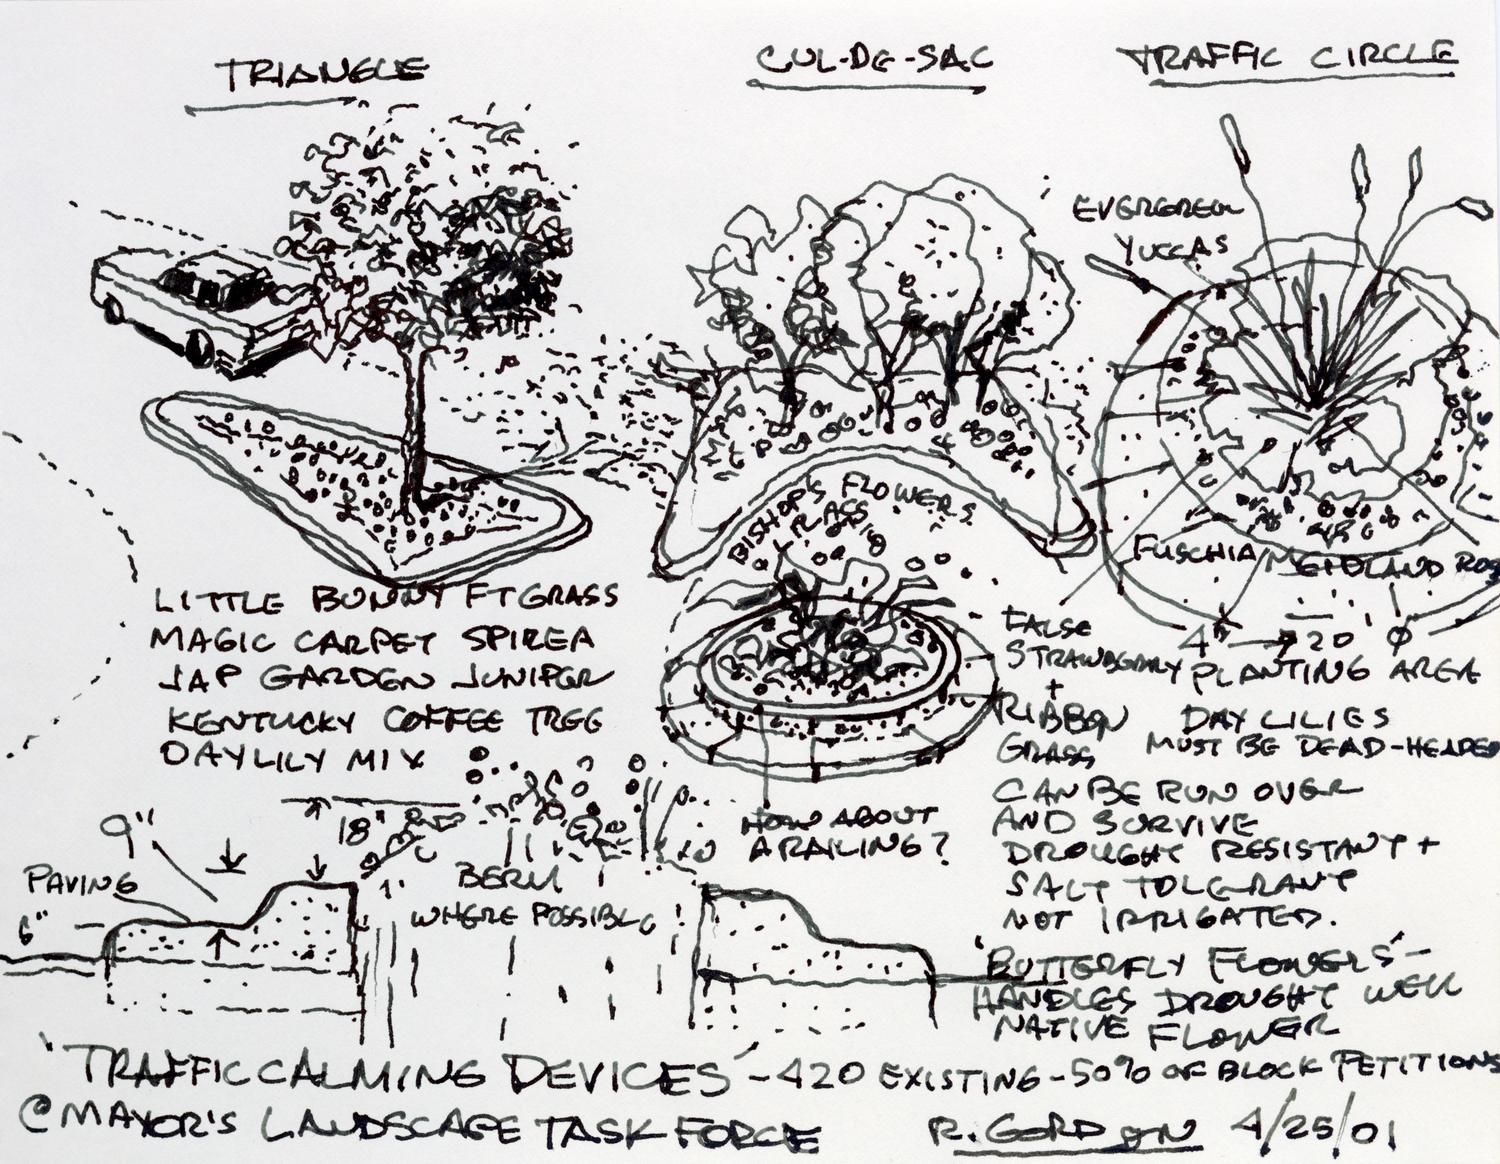 TRIANGLE
CUL-DE-SAC
TRAFFIC CIRCLE
EVERGREEN
YUCCAS
BISHOP'S FLOWERS
GRASS
FUSCHIA MEIDLAND ROSE
LITTLE BUNNY FT GRASS
MAGIC CARPET SPIREA
JAP GARDEN JUNIPER
KENTUCKY COFFEE TREE
DAYLILY MIX
FALSE
STRAWBERRY
+
RIBBON
GRASS
4" → 20' Ø
PLANTING AREA
DAY LILIES
MUST BE DEAD-HEADED
CAN BE RUN OVER
AND SURVIVE
DROUGHT RESISTANT +
SALT TOLERANT
NOT IRRIGATED.
HOW ABOUT
A RAILING?
9"
18"
PAVING
6"
1'
BERM
WHERE POSSIBLE
'BUTTERFLY FLOWERS' -
HANDLES DROUGHT WELL
NATIVE FLOWER
'TRAFFIC CALMING DEVICES' - 420 EXISTING - 50% OF BLOCK PETITIONS
@ MAYOR'S LANDSCAPE TASK FORCE
R. GORDON 4/25/01